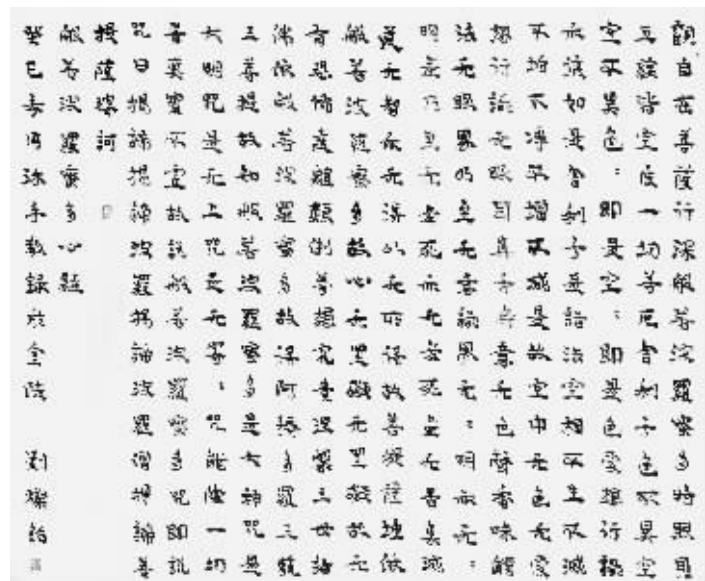 觀自在菩薩行深般若波羅蜜多時照見
五蘊皆空度一切苦厄舍利子色不異空
空不異色〻即是空〻即是色受想行識
亦復如是舍利子是諸法空相不生不滅
不垢不淨不增不減是故空中无色无受
想行識无眼耳鼻舌身意无色聲香味觸
法无眼界乃至无意識界无〻明亦无〻
明盡乃至无老死亦无老死盡无苦集滅
道无智亦无得以无所得故菩提薩埵依
般若波羅蜜多故心无罣礙无罣礙故无
有恐怖遠離顛倒夢想究竟涅槃三世諸
佛依般若波羅蜜多故得阿耨多羅三藐
三菩提故知般若波羅蜜多是大神咒是
大明咒是无上咒是无等〻咒能除一切
苦真實不虛故說般若波羅蜜多咒即說
咒曰揭諦揭諦波羅揭諦波羅僧揭諦菩
提薩婆訶
般若波羅蜜多心經
癸巳手敬錄於金陵 劉燦銘